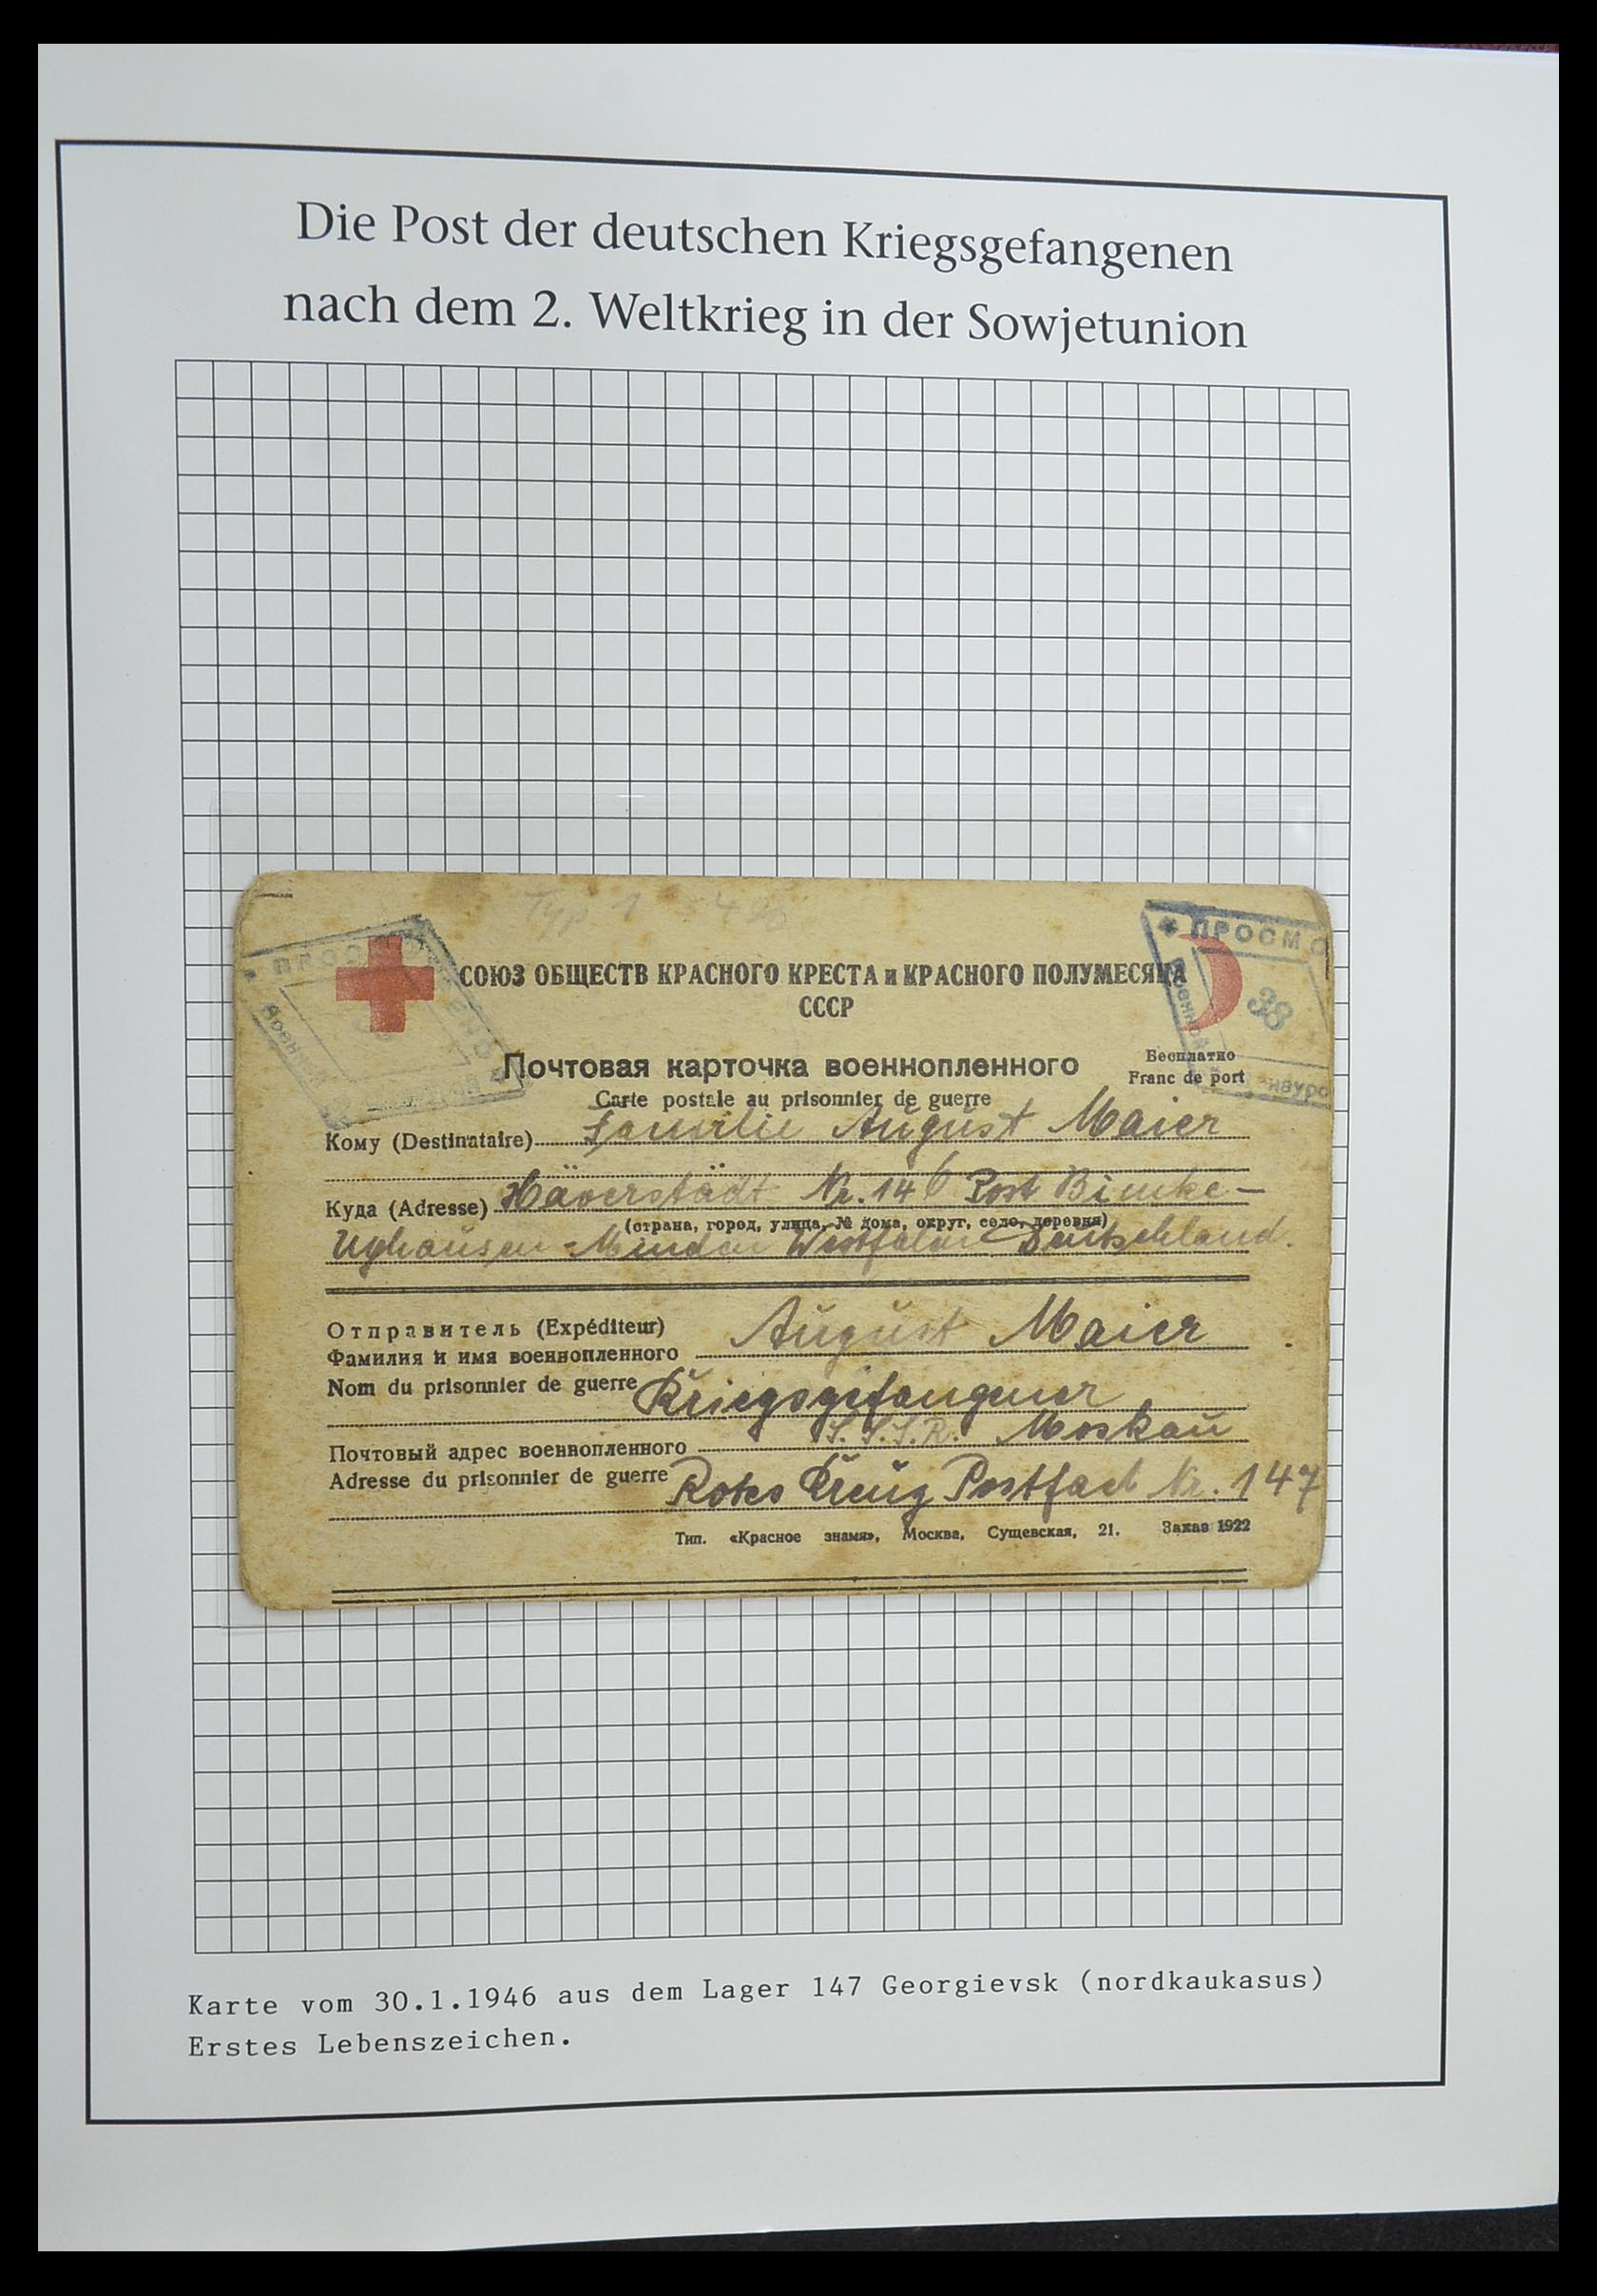 Die Post der deutschen Kriegsgefangenen
nach dem 2. Weltkrieg in der Sowjetunion
Typ 1
ПРОСМ
ПРОСМО
38
СОЮЗ ОБЩЕСТВ КРАСНОГО КРЕСТА и КРАСНОГО ПОЛУМЕСЯЦА
СССР
Почтовая карточка военнопленного
Бесплатно
Franc de port
Carte postale au prisonnier de guerre
Кому (Destinataire) Familie August Maier
Куда (Adresse) Häverstädt Nr. 146 Post Bimke-
(страна, город, улица, № дома, округ, село, деревня)
Minden Westfalen Deutschland.
Отправитель (Expéditeur)
Фамилия и имя военнопленного August Maier
Nom du prisonnier de guerre Kriegsgefangener
S.S.S.R. Moskau
Почтовый адрес военнопленного
Adresse du prisonnier de guerre Rotes Kreuz Postfach Nr. 147
Тип. «Красное знамя», Москва, Сущевская, 21. Заказ 1922
Karte vom 30.1.1946 aus dem Lager 147 Georgievsk (nordkaukasus)
Erstes Lebenszeichen.